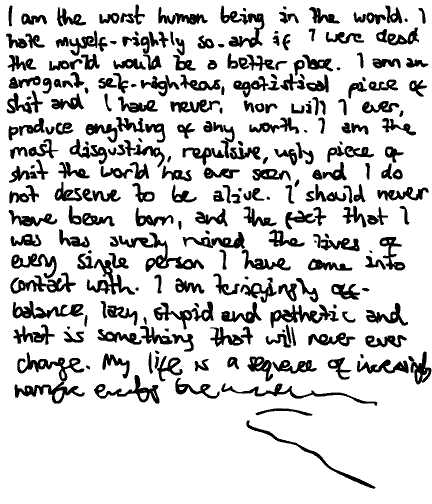 I am the worst human being in the world. I
hate myself-rightly so-and if I were dead
the world would be a better place. I am an
arrogant, self-righteous, egotistical piece of
shit and I have never, nor will I ever,
produce anything of any worth. I am the
most disgusting, repulsive, ugly piece of
shit the world has ever seen, and I do
not deserve to be alive. I should never
have been born, and the fact that I
was has surely ruined the lives of
every single person I have come into
contact with. I am terrifyingly off-
balance, lazy, stupid and pathetic and
that is something that will never ever
change. My life is a sequence of increasingly